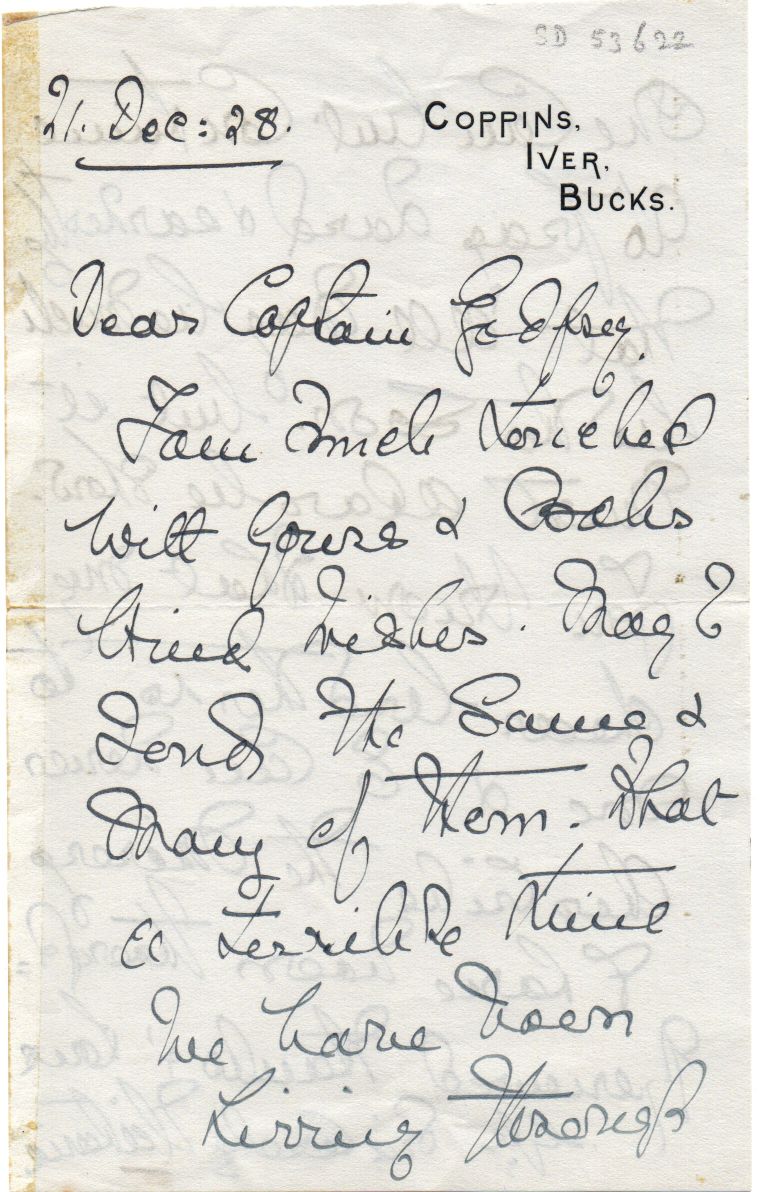 SD 53622
21. Dec: 28.
COPPINS,
IVER,
BUCKS.
Dear Captain Godfrey.
I am much touched
with yours &
kind wishes. May I
send the same &
many of them. What
a terrible time
we have been
living through